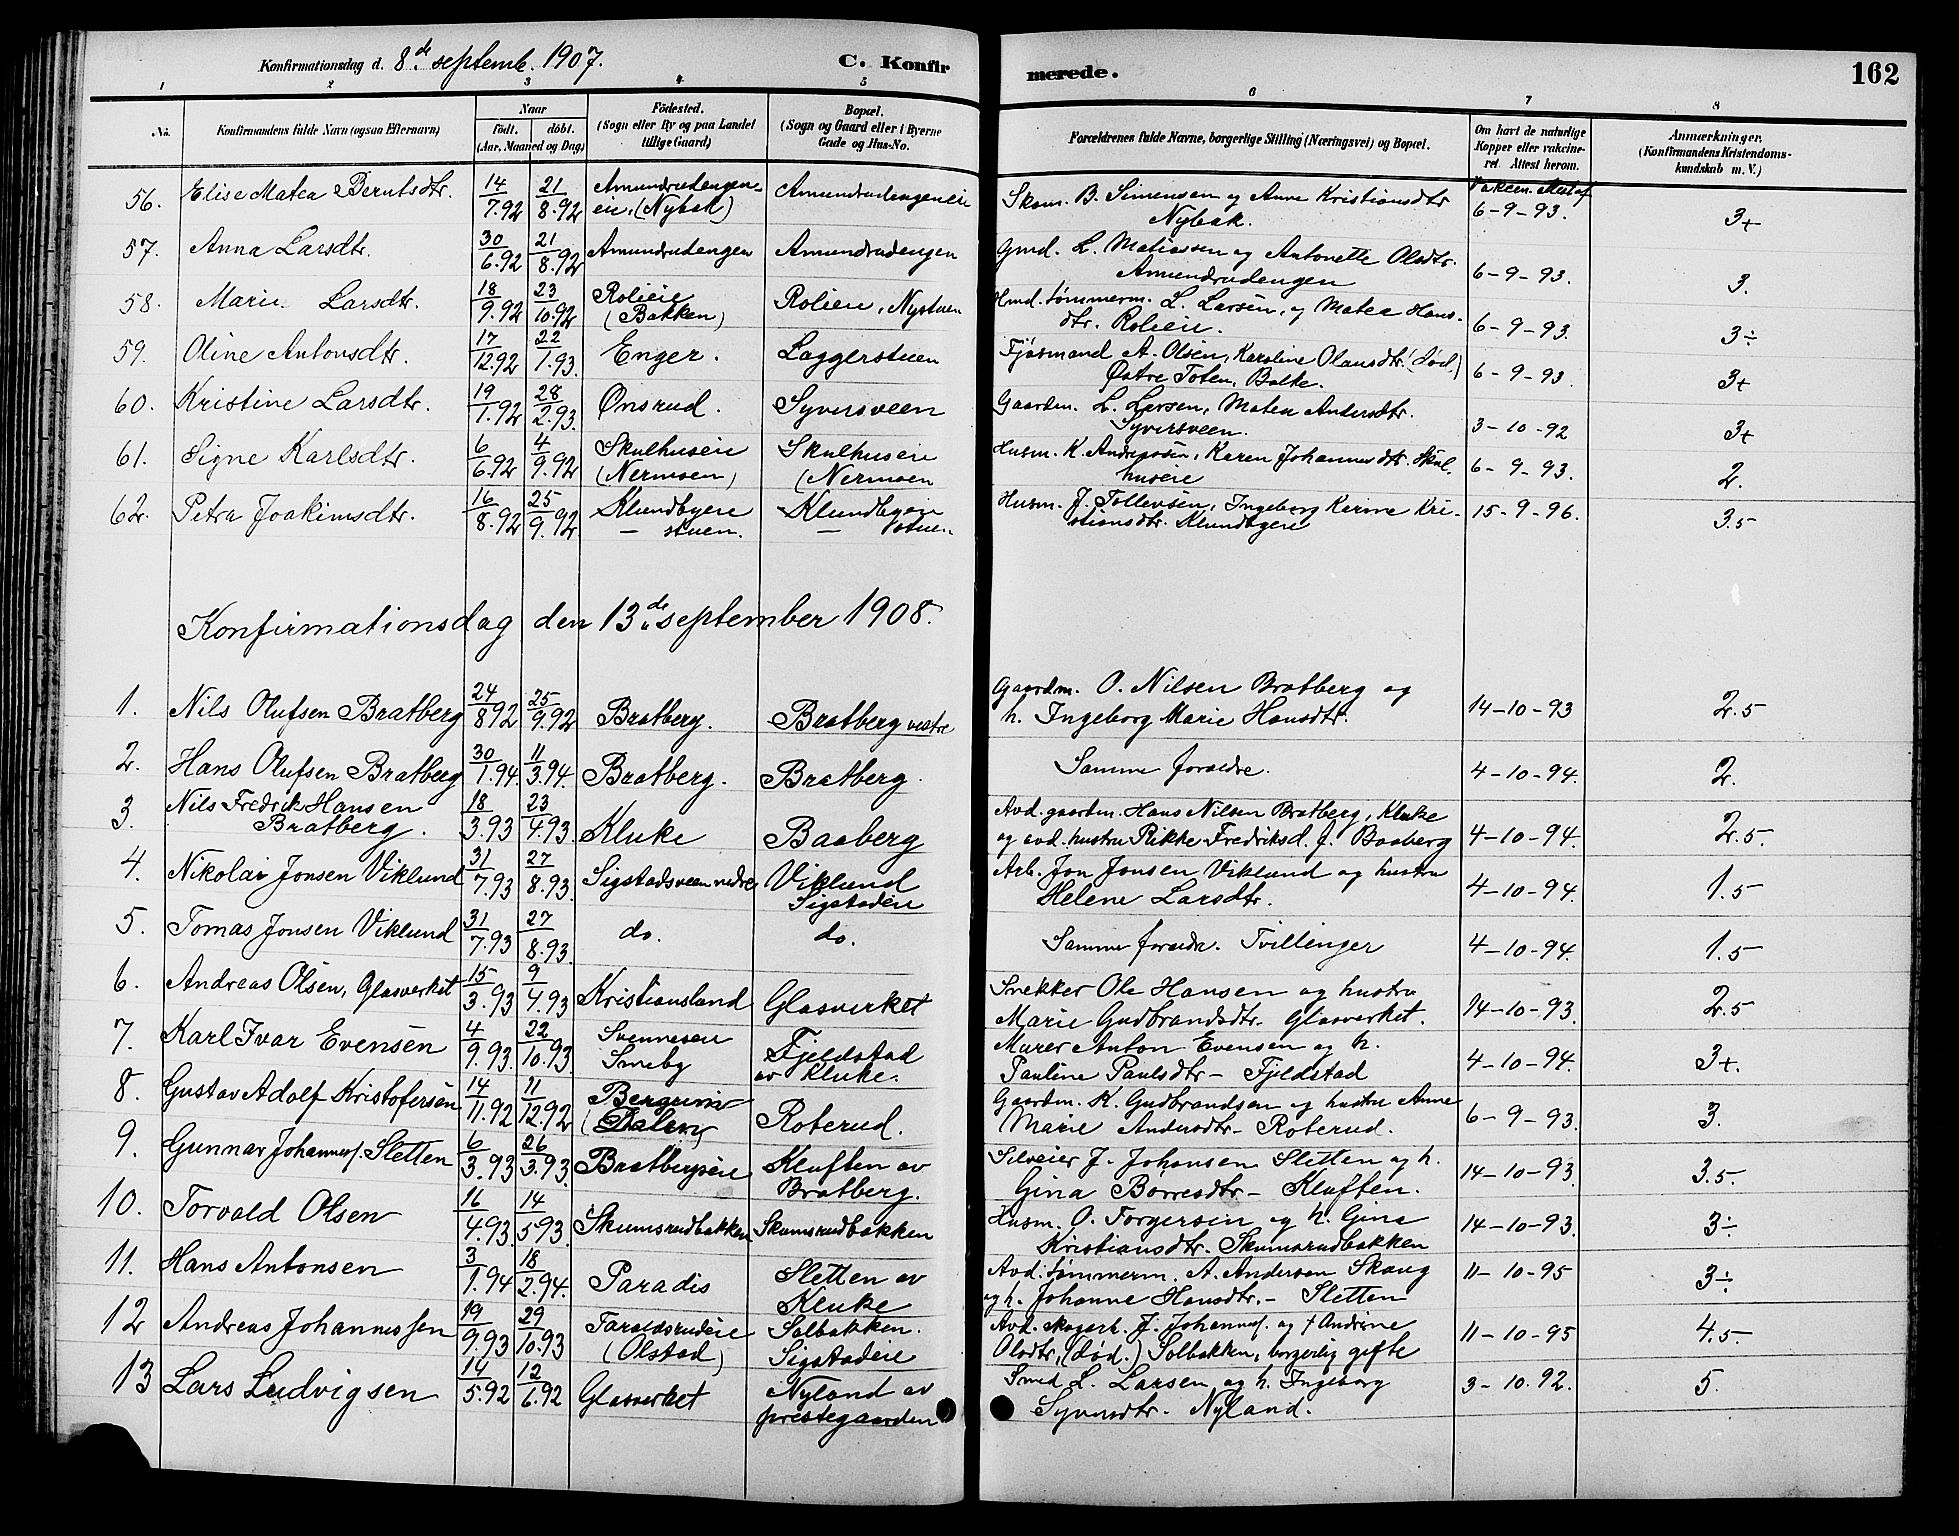 Konfirmationsdag d. 8de septemb. 1907. C. Konfir merede. 162
1 2 3 4 5 6 7 8
No. Konfirmandens fulde Navn (ogsaa Efternavn) Naar født. døbt. (Aar, Maaned og Dag) Fødested. (Sogn eller By og paa Landet tillige Gaard) Bopæl. (Sogn og Gaard eller i Byerne Gade og Hus-No. Forældrenes fulde Navne, borgerlige Stilling (Næringsvei) og Bopæl. Om havt de naturlige Kopper eller vakcineret. Attest herom. Anmærkninger. (Konfirmandens Kristendomskundskab m. V.)
56. Elise Matea Berntsdtr. 14/7.92 21/8.92 Amundrudengen- Amundrudengeneie Skom. B. Simensen og Anne Kristiansdtr Vakcin. Attest af
eie, (Nybak) Nybak. 6-9-93. 3+
57. Anna Larsdtr. 30/6.92 21/8.92 Amundrudengen Amundrudengen Gmd. L. Matiassen og Antonette Olsdtr.
Amundrudengen 6-9-93. 3.
58. Marie Larsdtr. 18/9.92 23/10.92 Rolieie Rolieie, Nystuen Hmd. tømmerm. L. Larsen, og Matea Hans-
(Bakken) dtr. Rolieie. 6-9-93. 3÷
59. Oline Antonsdtr. 17/12.92 22/1.93. Enger. Laggerstuen Fjøsmand A. Olsen, Karoline Olausdtr. (død.)
Østre Toten, Balke. 6-9-93. 3+
60. Kristine Larsdtr. 19/1.92 28/2.93. Ønsrud. Syversveen Gaardm. L. Larsen, Matea Andersdtr.
Syversveen. 3-10-92 3+
61. Signe Karlsdtr. 6/6.92 4/9.92 Skulhuseie Skulhuseie Husm. K. Andreasen, Karen Johannesdtr. Skul-
(Nermoen) (Nermoen huseie 6-9-93. 2.
62. Petra Joakimsdtr. 16/8.92 25/9.92 Klundbyeie Klundbyeie Husm. J. Tollevsen, Ingeborg Kri-
– stuen. – stuen. stiansdtr. Klundbyeie 15-9-96. 3.5
Konfirmationsdag den 13de september 1908.
1. Nils Olufsen Bratberg 24/8 92 25/9.92 Bratberg. Bratberg vestre Gaardm. O. Nilsen Bratberg og
h. Ingeborg Marie Hansdtr. 14-10-93 2.5
2. Hans Olufsen Bratberg 30/1.94. 11/3.94. Bratberg. Bratberg. Samme forældre. 4-10-94. 2.
3. Nils Fredrik Hansen 18/3.93 23/4.93 Kluke Baaberg Avd. gaardm. Hans Nilsen Bratberg, Kluke
Bratberg. og avd. hustru Rikke Fredriksd. f. Baaberg 4-10-94. 2.5.
4. Nikolai Jonsen Viklund 31/7.93 27/8.93. Sigstadsveen nedre Viklund Arb. Jon Jonsen Viklund og hustru
Sigstadeie Helene Larsdtr. 4-10-94. 1.5
5. Tomas Jonsen Viklund 31/7.93 27/8.93. do. do. Samme forældre. Tvillinger 4-10-94. 1.5
6. Andreas Olsen, Glasverket 15/3.93 9/4.93 Kristiansland Glasverket Snekker Ole Hansen og hustru
Marie Gudbrandsdtr. Glasverket. 14-10-93. 2.5
7. Karl Ivar Evensen 4/9.93. 22/10.93 Svennesveen Fjeldstad Murer Anton Evensen og h.
Smeby av Kluke. Pauline Paulsdtr – Fjeldstad 4-10-94. 3+.
8. Gustav Adolf Kristofersen 14/11.92 11/12.92 Bergseie Roterud. Gaardm. K. Gudbrandsen og hustru Anne
(Dalen) Marie Andersdtr – Roterud. 6-9-93. 3.
9. Gunnar Johannesf. Sletten 6/3.93 26/3.93. Bratbergseie Kluften av Selveier J. Johansen Sletten og h.
Bratberg. Gina Børresdtr – Kluften. 14-10-93. 3.5.
10. Torvald Olsen 16/4.93. 14/5 93. Skumsrudbakken Skumsrudbakken Husm. O. Torgersen og h. Gina
Kristiansdtr. Skumsrudbakken 14-10-93. 3÷
11. Hans Antonsen 3/1.94 18/2.94. Paradis Sletten av Avd. tømmerm. A. Andersen Skaug
Kluke og h. Johanne Hansdtr. – Sletten 11-10-95 3÷
12 Andreas Johannessen 19/9.93 29/10.93 Taraldsrudeie Solbakken. Avd. skogarb. J. Johannesf. og † Andrine
(Olstad) Sigstadeie Olsdtr, (død.) Solbakken, borgerlig gifte 11-10-95 4.5.
13 Lars Ludvigsen 14/5.92 12/6.92 Glasverket Nyland av Smed L. Larsen og h. Ingeborg
prestegaarden Syversdtr – Nyland. 3-10.92. 5.